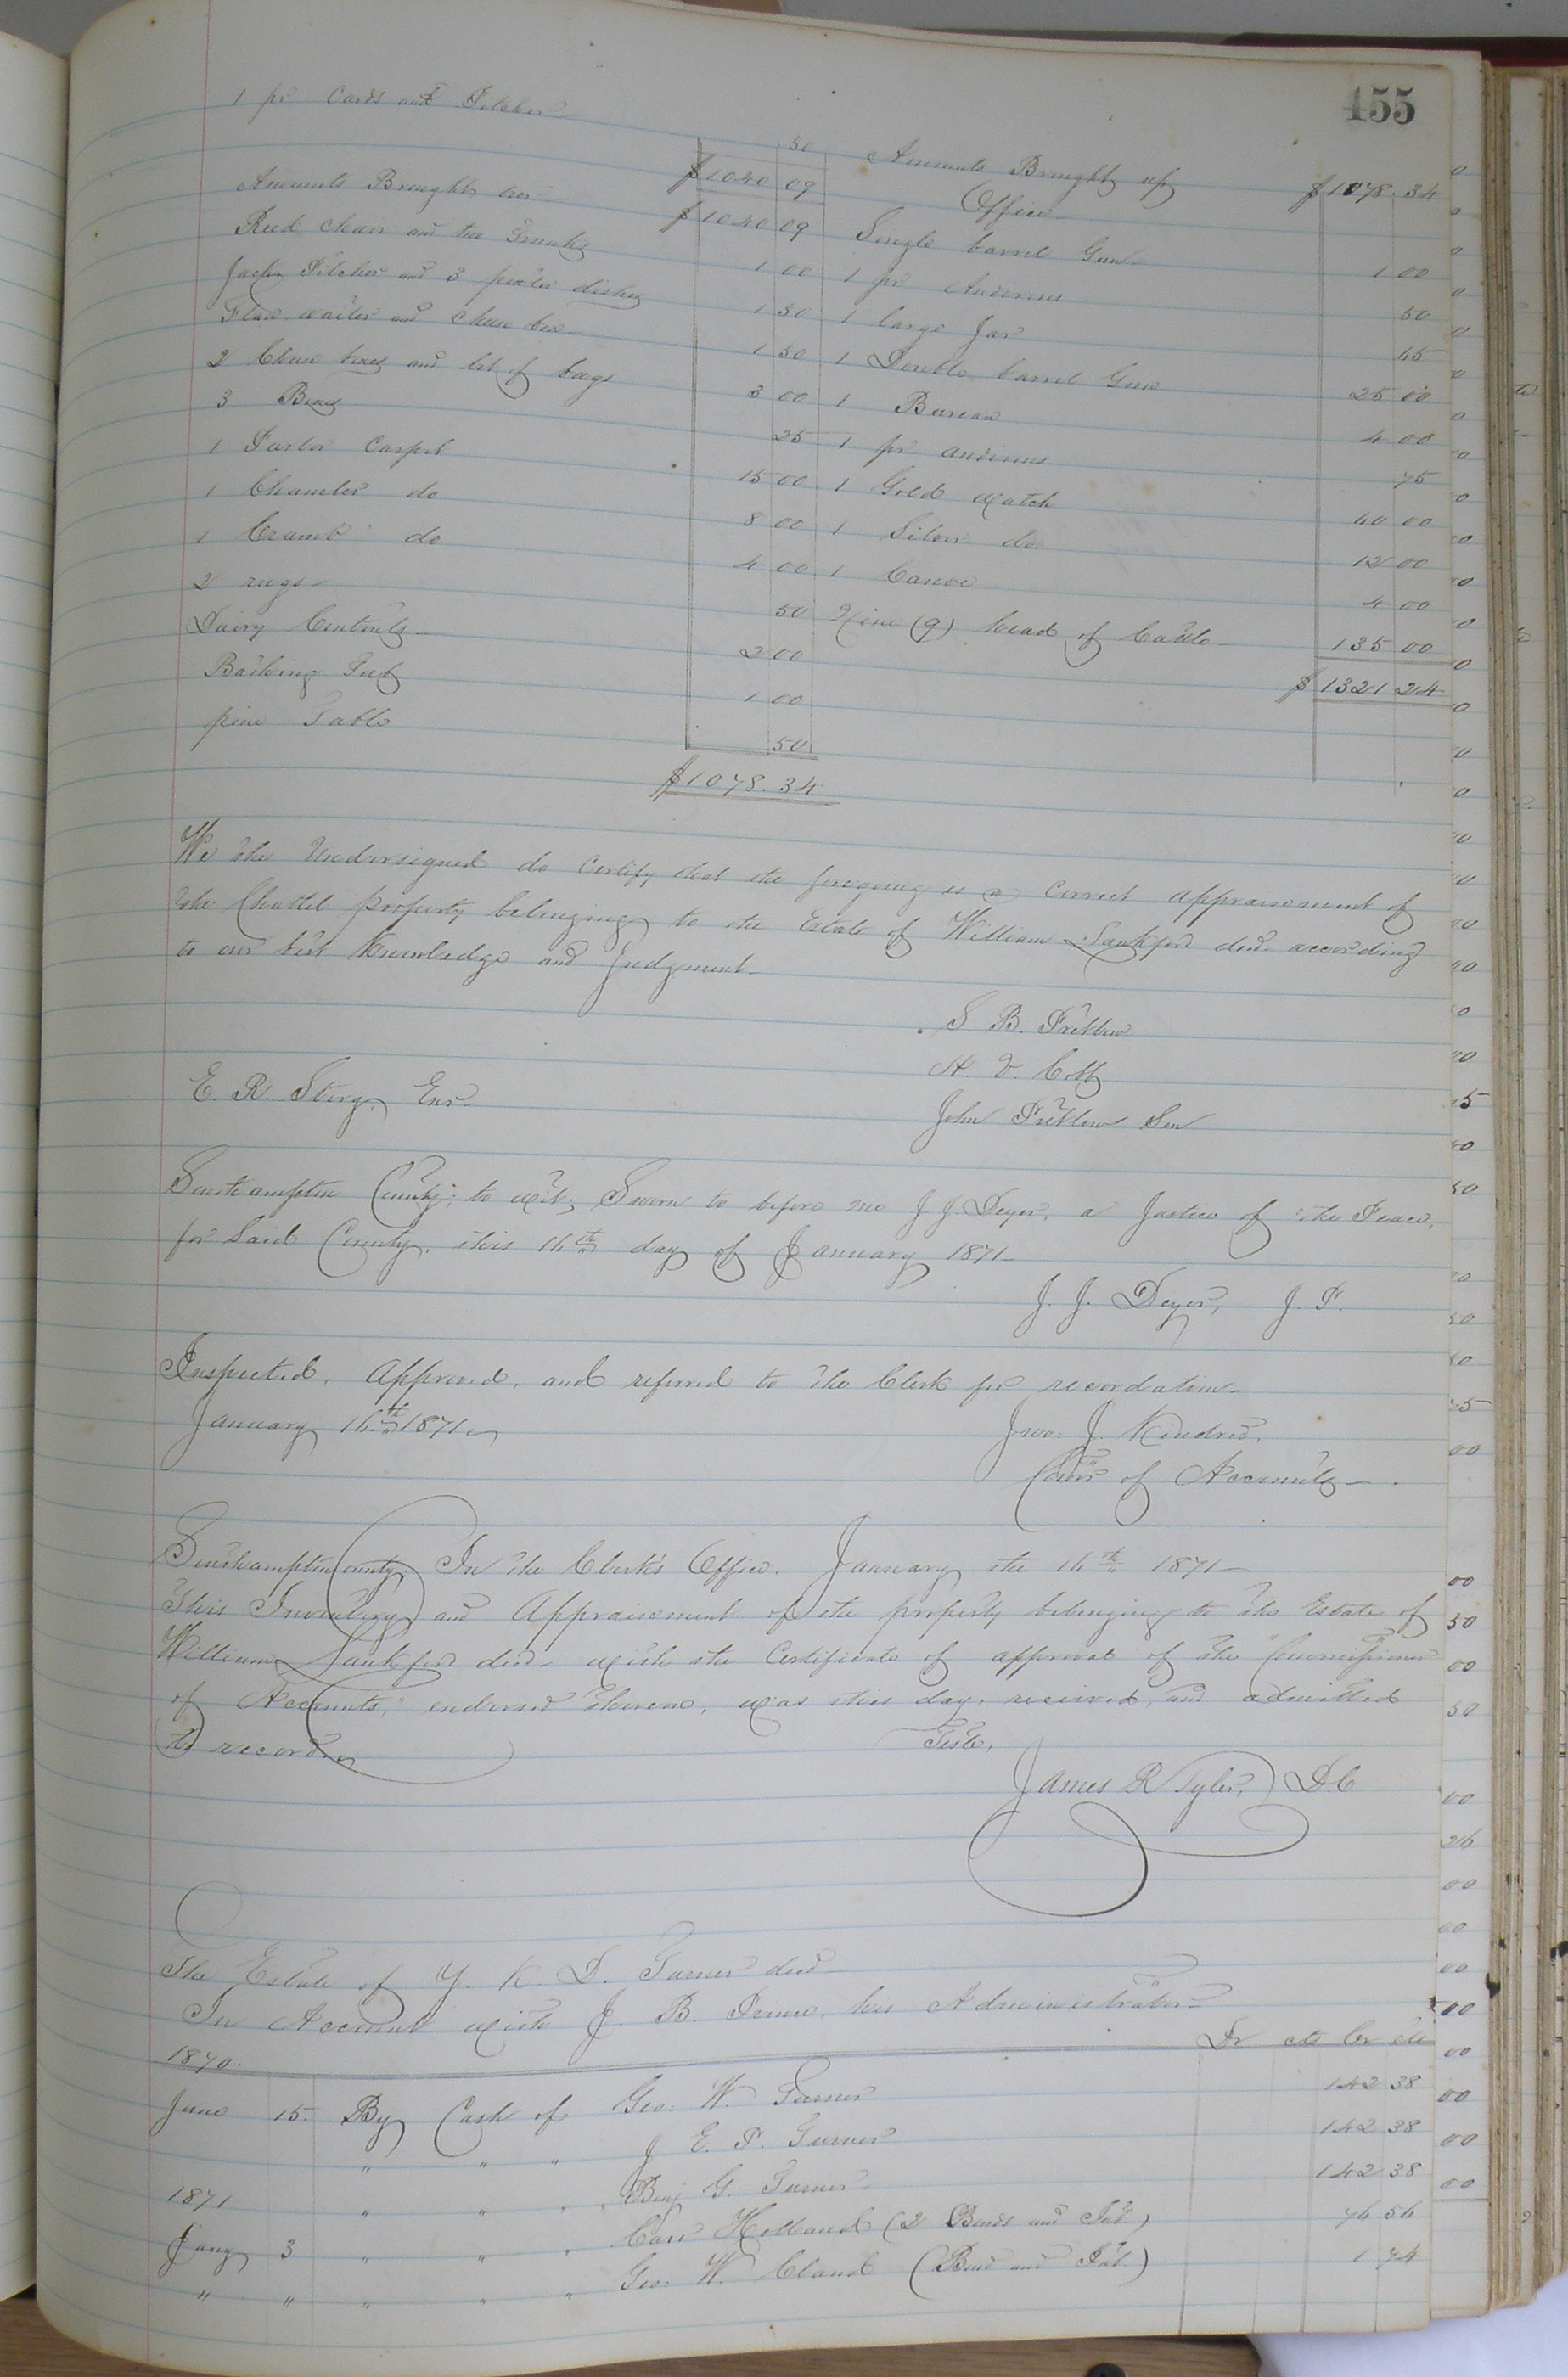 455
1 pr Cards and Pitcher 50
$1040 09
Amounts Brought over $1040 09
Reed chair and two Trunks 1 00
Pitcher and 3 pewter dishes 1 50
Flax waiter and Cheese box 1 50
2 Cheese boxes and lot of bags 3 00
3 Boxes 25
1 Parlor Carpet 15 00
1 Chamber do 8 00
1 do 4 00
2 rugs 50
Dairy Contents 2 00
Bathing Tub 1 00
pine Table 50
$1078.34
Amounts Brought up $1078.34
Office
Single barrel Gun 1 00
1 pr Andirons 50
1 large Jar 45
1 Double barrel Gun 25 00
1 Bureau 4 00
1 pr andirons 75
1 Gold watch 40 00
1 Silver do 12 00
1 Canoe 4 00
Nine (9) head of Cattle 135 00
$1321 24
We the Undersigned do Certify that the foregoing is a correct appraisement of
the Chattel property belonging to the Estate of William Lankford decd according
to our best Knowledge and Judgment
S. B. Pretlow
H. V. Cobb
E. R. Exor
John Pretlow Sen
Southampton County: to wit; Sworn to before me J J Deyer, a Justice of the Peace,
for Said County, this 16th day of January 1871
J. J. Deyer, J. P.
Inspected, Approved, and referred to the Clerk for recordation
January 16th 1871
Jno. J. Kindred,
Comr of Accounts
Southampton County, In the Clerk's Office, January the 16th 1871
This Inventory and Appraisement of the property belonging to the Estate of
William Lankford decd with the Certificate of approval of the "Commissioner
of Accounts," endorsed thereon, was this day, received, and admitted
to record
Teste,
James R Tyler, D.C
The Estate of Y. K. D. Turner decd
In Account with J. B. Prince, his Administrator
Dr cts Cr cts
1870.
June 15. By Cash of Geo. W. Turner 142 38
" " " J E. P. Turner 142 38
1871 " " " Benj G. Turner 142 38
Jany 3 " " " Carr Holland (2 Bonds and Int.) 76 56
" " " " " Geo. W. Claud (Bond and Int.) 1 74